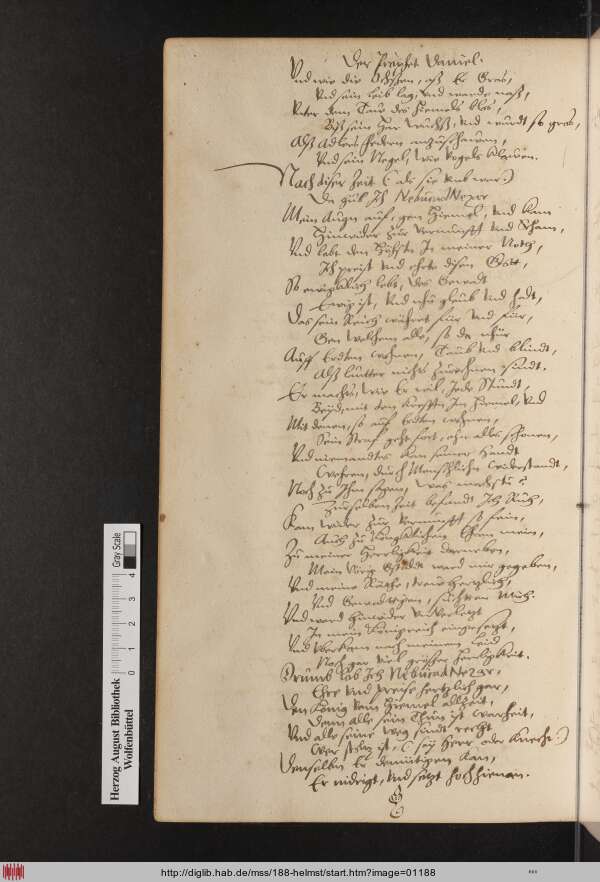 Der Prophet Daniel.
Vnd wie die Ochssen, aß Er Gras,
Vnd sein leib lag, vnd warde naß,
Vnter dem Taw des Himels blos,
Biß sein Har wuchß, vnd wurdt so gros,
Alß Adlers federn anzuschawen,
Vnd sein Negel, wie Vogels klawen.
Nach diser Zeit ( als sie vmb war:)
Da hub Ich NebucadNezer
Mein Augn auff, gen Himel, vnd kam
Hinwider zur Vernunfft vnd Scham,
Vnd lobt den Höhsten In meiner Noth,
Ich preist vnd ehrte disen Gott,
So ewigklich lebt, des Gewalt
Ewig ist, vnd
Das sein Reich währet für vnd für,
Gen welchem alle, so da
Auff Erdten wohnen, Taub vnd blindt,
Alß lautter nichts zurechnen sindt.
Er machts, wie Er wil, Jede Stundt,
Beyd, mit den kreffen Im Himel, vnd
Mit denen, so auf Erdten wohnen,
Sein Straf geht fort, ohn alles schonen,
Vnd niemandts kan seiner Handt
Wehren, durch Menschlichn widerstandt,
Noch zu Ihm sagen, was machstu?
Zurselben Zeit befandt Ich Ruh,
Kam wider zur Vernunfft so fein,
Auch zu Königklichen Ehrn mein,
Zu meiner Herrligkeit darneben,
Mein vorig Gstaldt ward mir gegeben,
Vnd meine Räthe,
Vnd Gewaltigen, suchten Mich.
Vnd ward hinwider vnverletzt
In mein Königreich eingesetzt,
Vnd vberkam nach meinem Leid
Noch gar viel grösser Herligkeit.
Drumb lob Ich NebucadNezar,
Ehre vnd preise hertzlich gar,
Den König vom Himel allzeit,
Denn all sein Thun ist warheit,
Vnd alle seine Weg sindt recht
Wer stoltz ist, ( sey Herr oder Knecht:)
Denselben Er demütigen kan,
Er nidrigt, vnd setzt hoch hienan.
Herzog August Bibliothek
Wolfenbüttel
Gray Scale
0 1 2 3 4
http://diglib.hab.de/mss/188-helmst/start.htm?image=01188